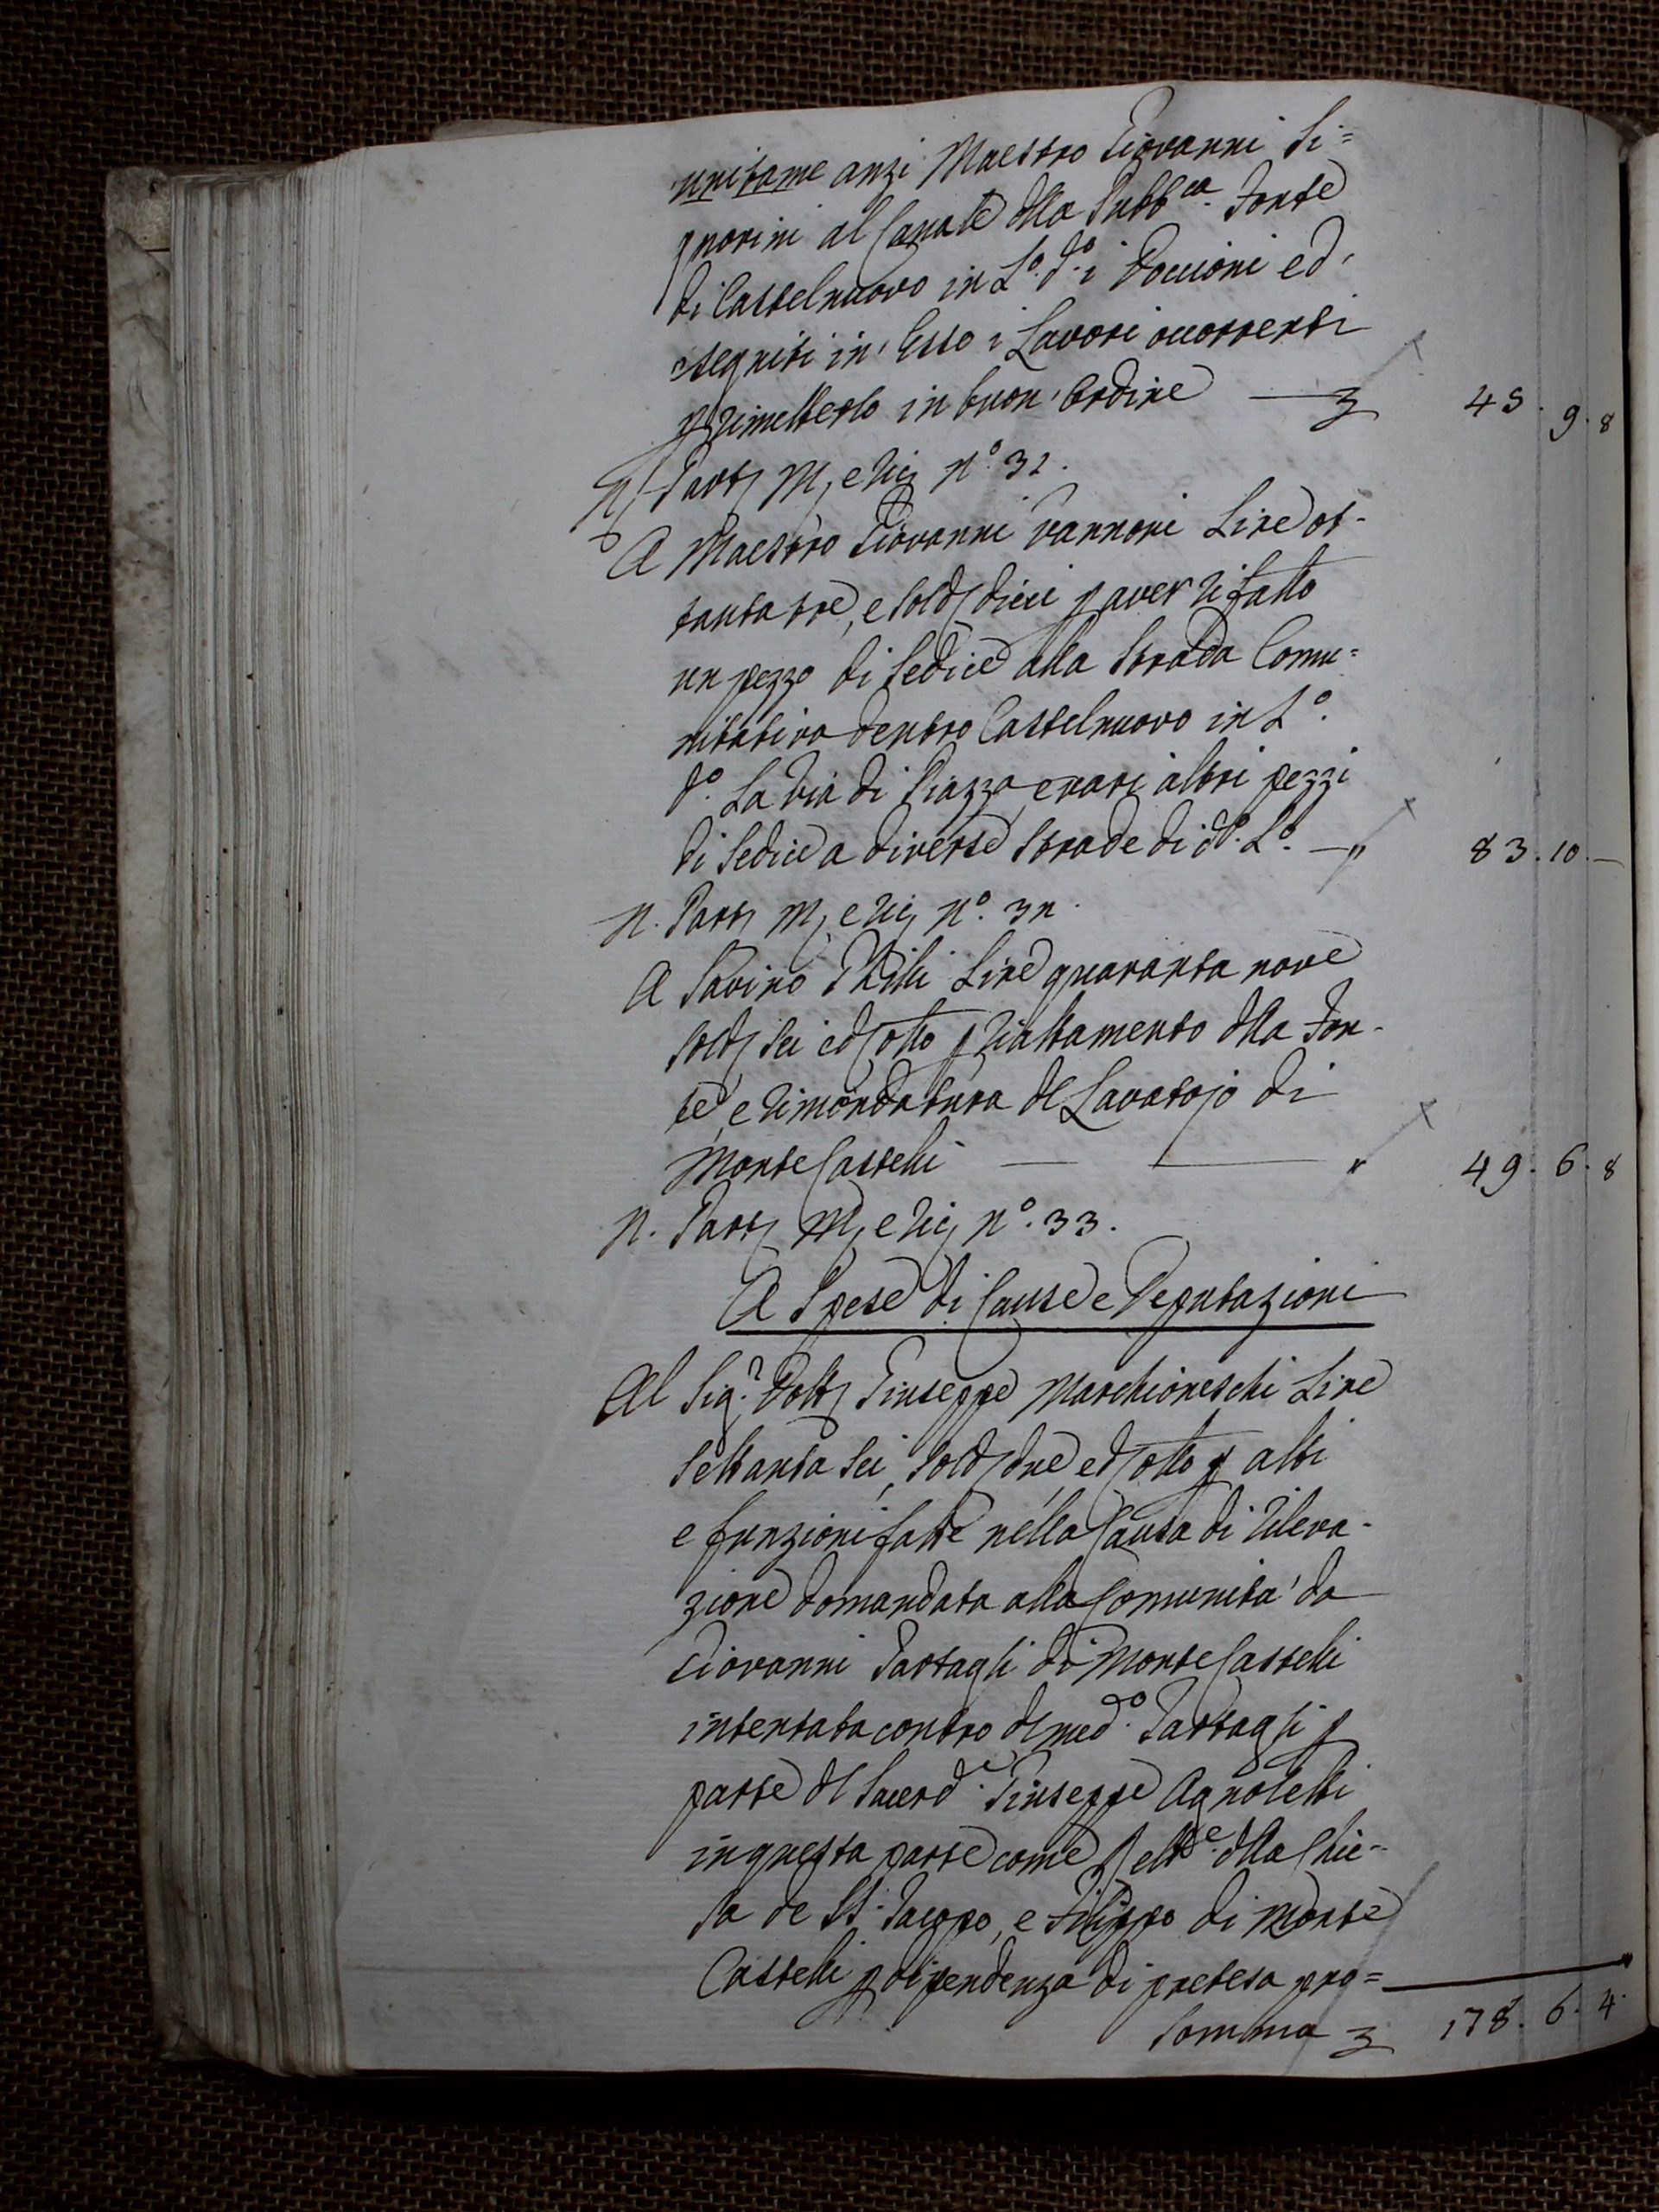 unitame anzi Maestro Giovanni Si=
gnorini al Canale dlla Pubb.ca Fonte
di Castelnuovo in L.o d.o i Doccioni ed'
eseguiti in' Esso i Lavori occorrenti
p rimetterlo in buon' Ordine — 45. 9. 8
N. Part M, e Ric n.o 31.
A Maestro Giovanni Vannoni Lire ot-
tantatre, e sold dieci p aver rifatto
un pezzo di Selice alla Strada Comu=
nitativa dentro Castelnuovo in L.o
d.o La Via di Piazza, e vari altri pezzi
di Selice a diverse Strade di d.o L.o — " 83. 10. —
N. Part M, e Ric n.o 32.
A Savino Lire quaranta nove
sold sei ed otto p riattamento dlla Fon-
te, e rimondatura dl Lavatojo di
Monte Castelli — — " 49. 6. 8
N. Part M, e Ric n.o 33.
A Spese di Cause e Deputazioni
Al Sig.r Dott Giuseppe Marchioneschi Lire
settanta sei, sold due, ed otto p atti
e funzioni fatte nella Causa di Rileva-
zione domandata alla Comunita' da
Giovanni Tartagli di Monte Castelli
intentata contro dl med.o Tartagli p
parte dl Sacerd.e Giuseppe Agnoletti
in questa parte come Rett.e dlla Chie-
sa de SS. Jacopo, e Filippo di Monte
Castelli p dipendenza di pretesa pro=
Somma 178. 6. 4.